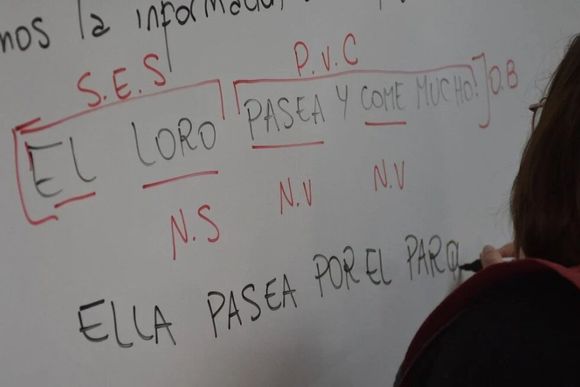 la
S.E.S P.v.C
[EL LORO PASEA Y COME MUCHO!] O.B
N.S N.V N.V
ELLA PASEA POR EL PARQ